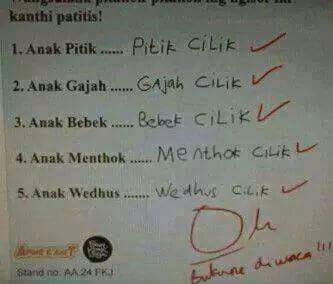 kanthi patitis!
1. Anak Pitik ...... Pitik Cilik
2. Anak Gajah ...... Gajah Cilik
3. Anak Bebek ...... Bebek Cilik
4. Anak Menthok ...... Menthok Cilik
5. Anak Wedhus ....... Wedhus Cilik
Bukune diwaca!!!
Stand no: AA.24 FKJ